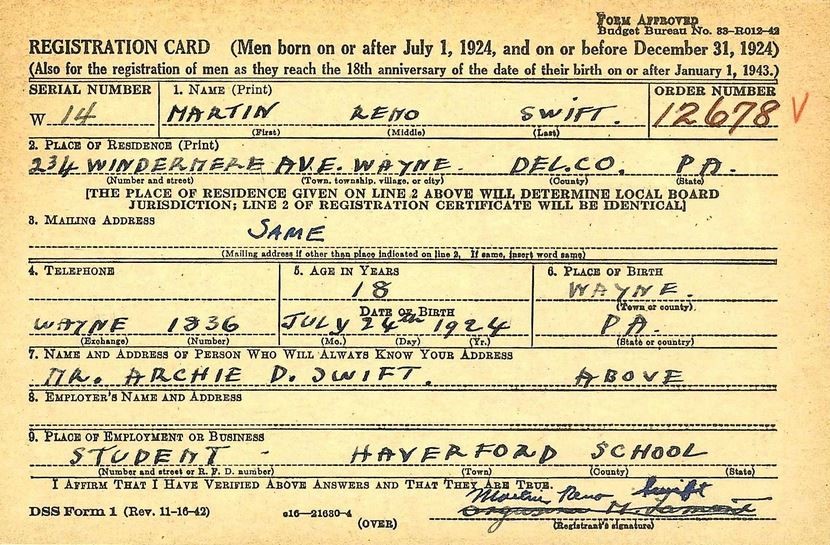 FORM APPROVED
Budget Bureau No. 33-R012-42
REGISTRATION CARD (Men born on or after July 1, 1924, and on or before December 31, 1924)
(Also for the registration of men as they reach the 18th anniversary of the date of their birth on or after January 1, 1943.)
SERIAL NUMBER 1. NAME (Print) ORDER NUMBER
W 14 MARTIN RENO SWIFT. 12678 V
(First) (Middle) (Last)
2. PLACE OF RESIDENCE (Print)
234 WINDERMERE AVE. WAYNE. DEL.CO. PA.
(Number and street) (Town, township, village, or city) (County) (State)
[THE PLACE OF RESIDENCE GIVEN ON LINE 2 ABOVE WILL DETERMINE LOCAL BOARD
JURISDICTION; LINE 2 OF REGISTRATION CERTIFICATE WILL BE IDENTICAL]
3. MAILING ADDRESS
SAME
(Mailing address if other than place indicated on line 2. If same, insert word same)
4. TELEPHONE 5. AGE IN YEARS 6. PLACE OF BIRTH
18 WAYNE.
DATE OF BIRTH (Town or county)
WAYNE 1836 JULY 24th 1924 PA.
(Exchange) (Number) (Mo.) (Day) (Yr.) (State or country)
7. NAME AND ADDRESS OF PERSON WHO WILL ALWAYS KNOW YOUR ADDRESS
MR. ARCHIE D. SWIFT. ABOVE
8. EMPLOYER'S NAME AND ADDRESS
9. PLACE OF EMPLOYMENT OR BUSINESS
STUDENT - HAVERFORD SCHOOL
(Number and street or R. F. D. number) (Town) (County) (State)
I AFFIRM THAT I HAVE VERIFIED ABOVE ANSWERS AND THAT THEY ARE TRUE.
Martin Reno Swift
DSS Form 1 (Rev. 11-16-42) c16-21630-4
(OVER) (Registrant's signature)